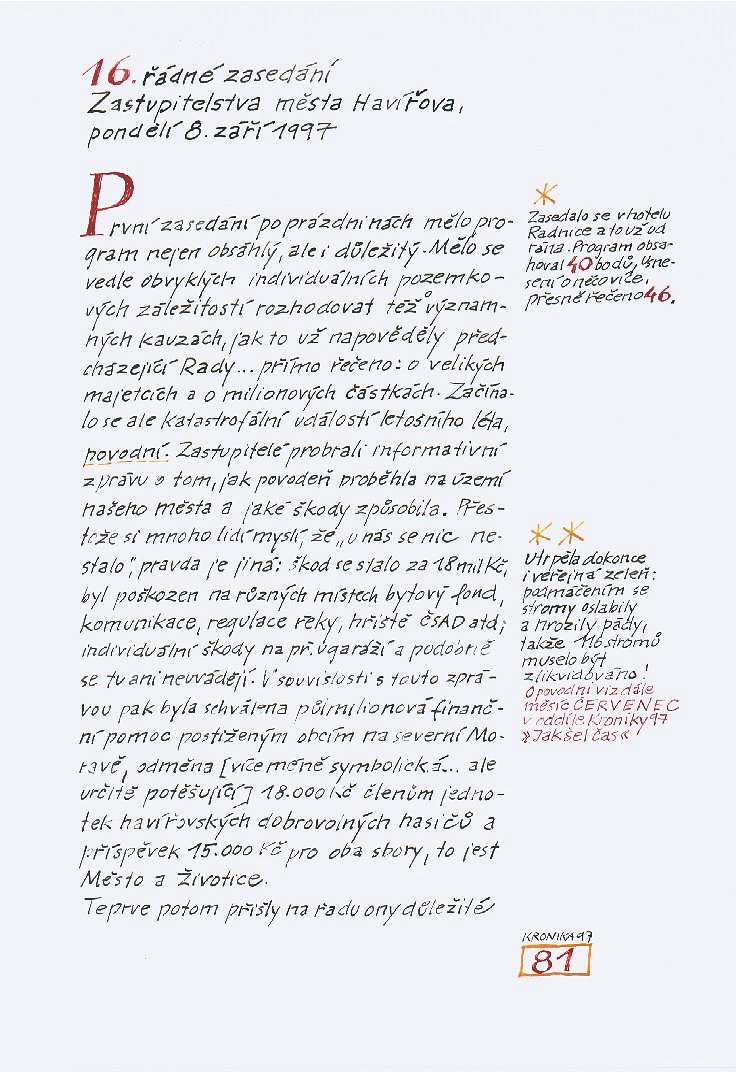 16. řádné zasedání
Zastupitelstva města Havířova,
pondělí 8. září 1997
První zasedání po prázdninách mělo pro-
gram nejen obsáhlý, ale i důležitý. Mělo se
vedle obvyklých individuálních pozemko-
vých záležitostí rozhodovat též o význam-
ných kauzách, jak to už napověděly před-
cházející Rady... přímo řečeno: o velikých
majetcích a o milionových částkách. Začína-
lo se ale katastrofální událostí letošního léta,
povodní. Zastupitelé probrali informativní
zprávu o tom, jak povodeň proběhla na území
našeho města a jaké škody způsobila. Přes-
tože si mnoho lidí myslí, že „u nás se nic ne-
stalo", pravda je jiná: škod se stalo za 18 mil Kč,
byl poškozen na různých místech bytový fond,
komunikace, regulace řeky, hřiště ČSAD atd;
individuální škody na př. u garáží a podobně
se tu ani neuvádějí. V souvislosti s touto zprá-
vou pak byla schválena půlmilionová finanč-
ní pomoc postiženým obcím na severní Mo-
ravě, odměna [víceméně symbolická... ale
určitě potěšující] 18.000 Kč členům jedno-
tek havířovských dobrovolných hasičů a
příspěvek 15.000 Kč pro oba sbory, to jest
Město a Životice.
Teprve potom přišly na řadu ony důležité
*
Zasedalo se v hotelu
Radnice a to už od
rána. Program obsa-
hoval 40 bodů, usne-
sení o něco více,
přesně řečeno 46.
* *
Utrpěla dokonce
i veřejná zeleň:
podmáčením se
stromy oslabily
a hrozily pády,
takže 116 stromů
muselo být
zlikvidováno!
O povodni viz dále
měsíc ČERVENEC
v oddíle Kroniky 97
»Jak šel čas«
KRONIKA 97
81